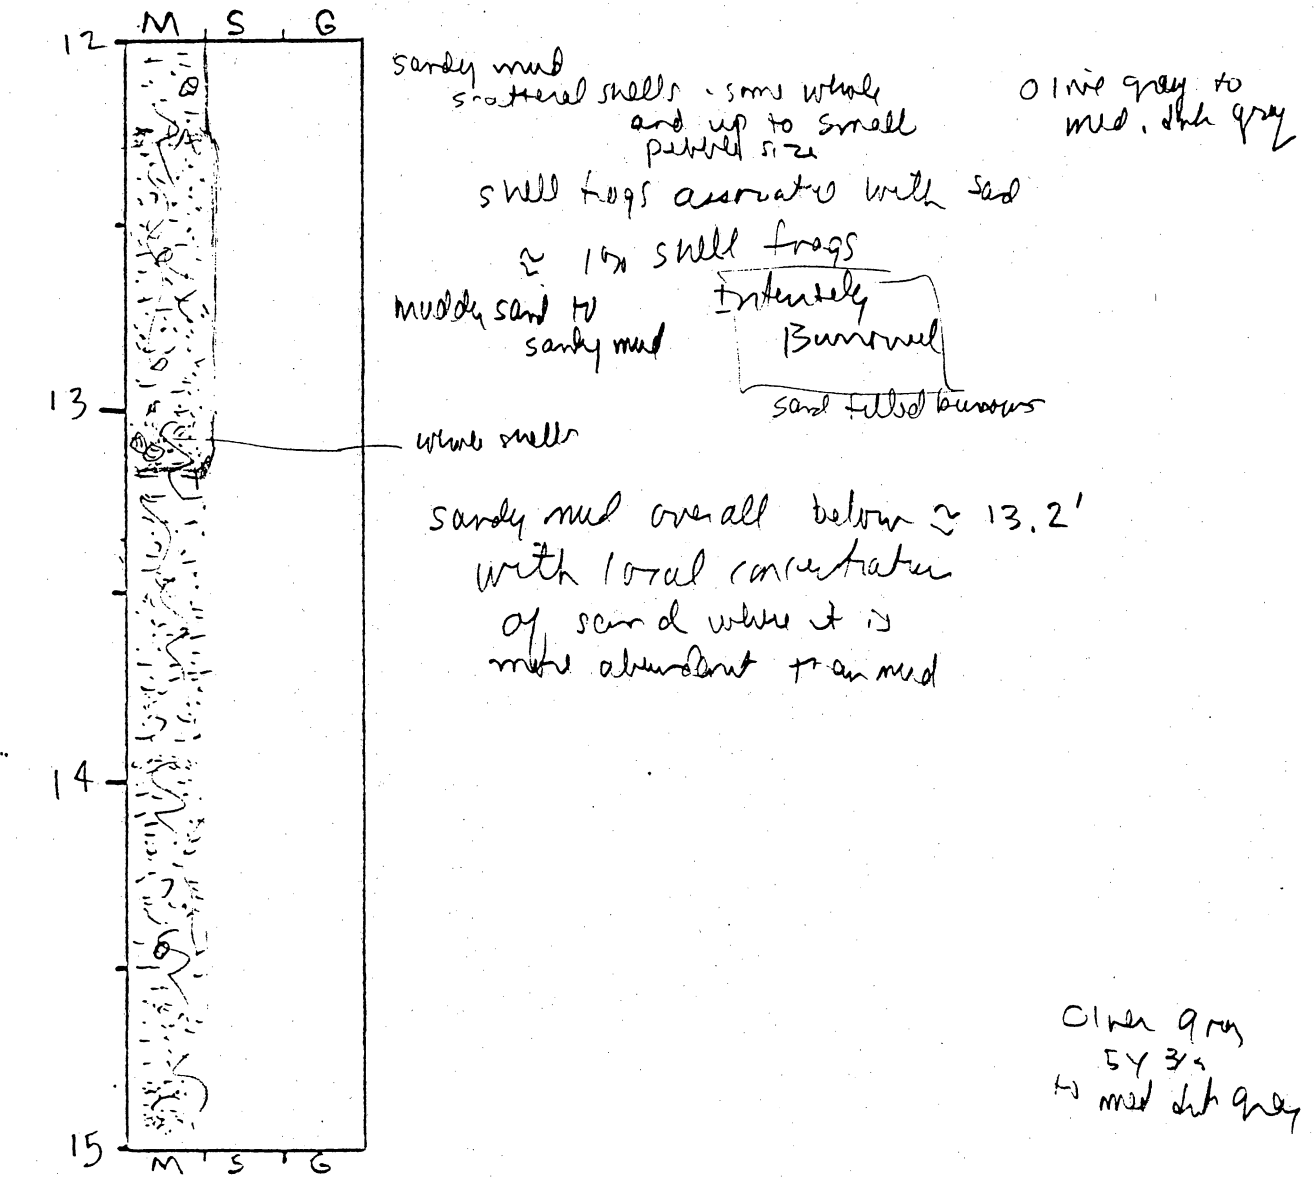 M S G
12
sandy mud
scattered shells - some whole
and up to small
pebble size
Olive gray to
med. dark gray
shell frags associated with sand
≈ 1% shell frags
muddy sand to
sandy mud
Intensely
Burrowed
13
sand filled burrows
whole shells
sandy mud overall below ≈ 13.2'
with local concentration
of sand where it is
more abundant than mud
14
Olive gray
5Y 3/2
to med drk gray
15
M S G